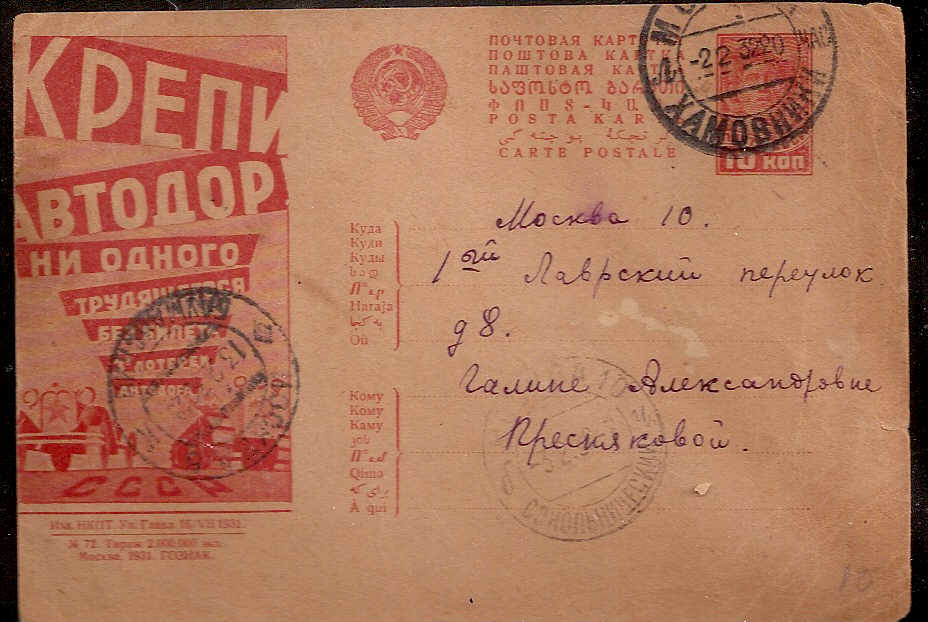 КРЕПИ
АВТОДОР.
НИ ОДНОГО
ТРУДЯЩЕГОСЯ
БЕЗ БИЛЕТА
3 ЛОТЕРЕИ
АВТОДОРА
СССР
Изд. НКПТ. Уп. Главл. 16/VII 1931.
№ 72. Тираж 2.000.000 экз.
Москва. 1931. ГОЗНАК.
ПОЧТОВАЯ КАРТ
ПОШТОВА КАРТК
ПАШТОВАЯ КА
POSTA KAR
CARTE POSTALE
МО
-2 2 32 20
ХАМОВНИКИ
10 КОП
Куда
Куди
Куды
Haraja
Où
Кому
Кому
Каму
Qimə
À qui
Москва 10.
1ый Лаврский переулок
д 8.
Галине Александровне
Пресняковой.
СОКОЛЬНИЧЕСКИЙ
10